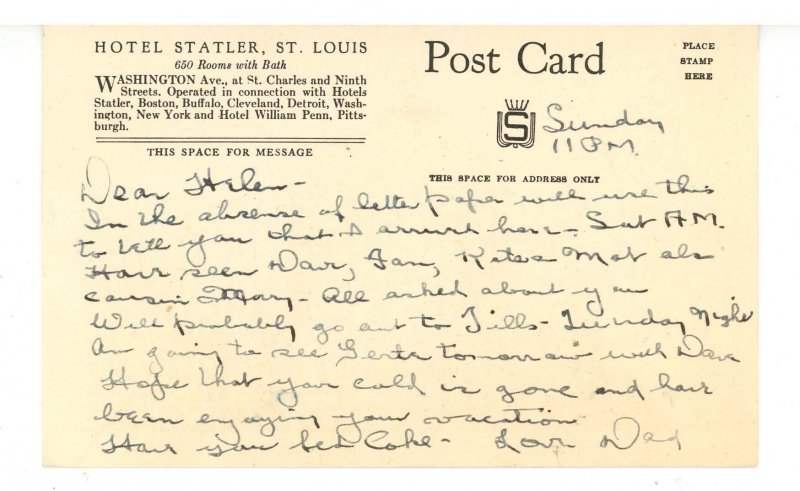 HOTEL STATLER, ST. LOUIS
650 Rooms with Bath
WASHINGTON Ave., at St. Charles and Ninth
Streets. Operated in connection with Hotels
Statler, Boston, Buffalo, Cleveland, Detroit, Wash-
ington, New York and Hotel William Penn, Pitts-
burgh.
THIS SPACE FOR MESSAGE
Post Card
PLACE
STAMP
HERE
S
Sunday
11 PM.
THIS SPACE FOR ADDRESS ONLY
Dear Helen -
In the absense of letter paper will use this
to tell you that I arrived here - Sat AM.
Have seen Dave, Fan, Mat als
cousin Mary - All asked about you
Will probably go out to Tills - Tuesday Night
Am going to see Gerte tomorrow with Dave
Hope that your cold is gone and have
been enjoying your vacation
Have you fed Coke - Love Dad